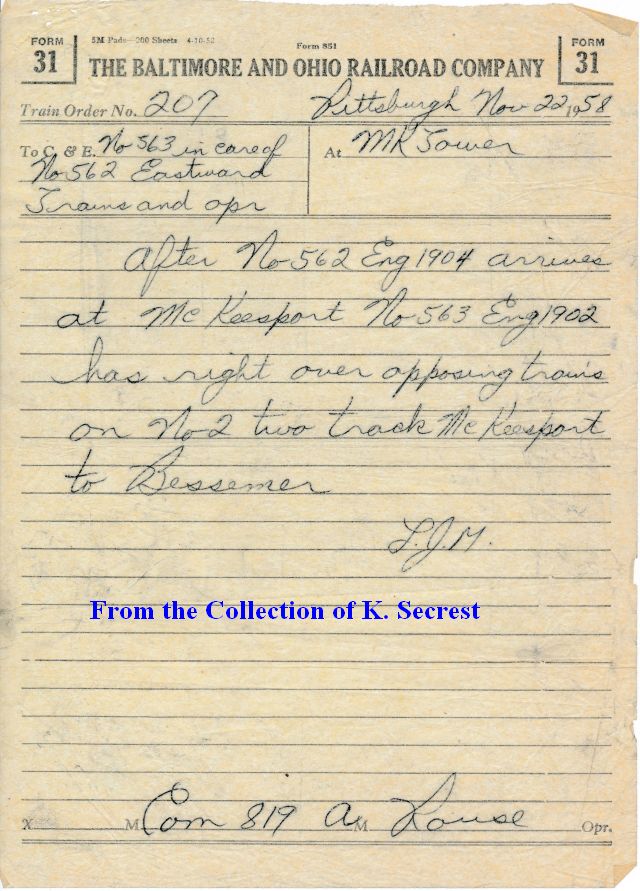 FORM 31
5M Pads—200 Sheets 4-10-52
Form 851
FORM 31
THE BALTIMORE AND OHIO RAILROAD COMPANY
Train Order No. 207 Pittsburgh Nov 22 1958
To C. & E. No 563 in care of
No 562 Eastward
Trains and opr
At MK Tower
After No 562 Eng 1904 arrives
at Mc Keesport No 563 Eng 1902
has right over opposing trains
on No 2 two track Mc Keesport
to Bessemer
L.J.M.
From the Collection of K. Secrest
X M. Com 819 A M Rouse Opr.